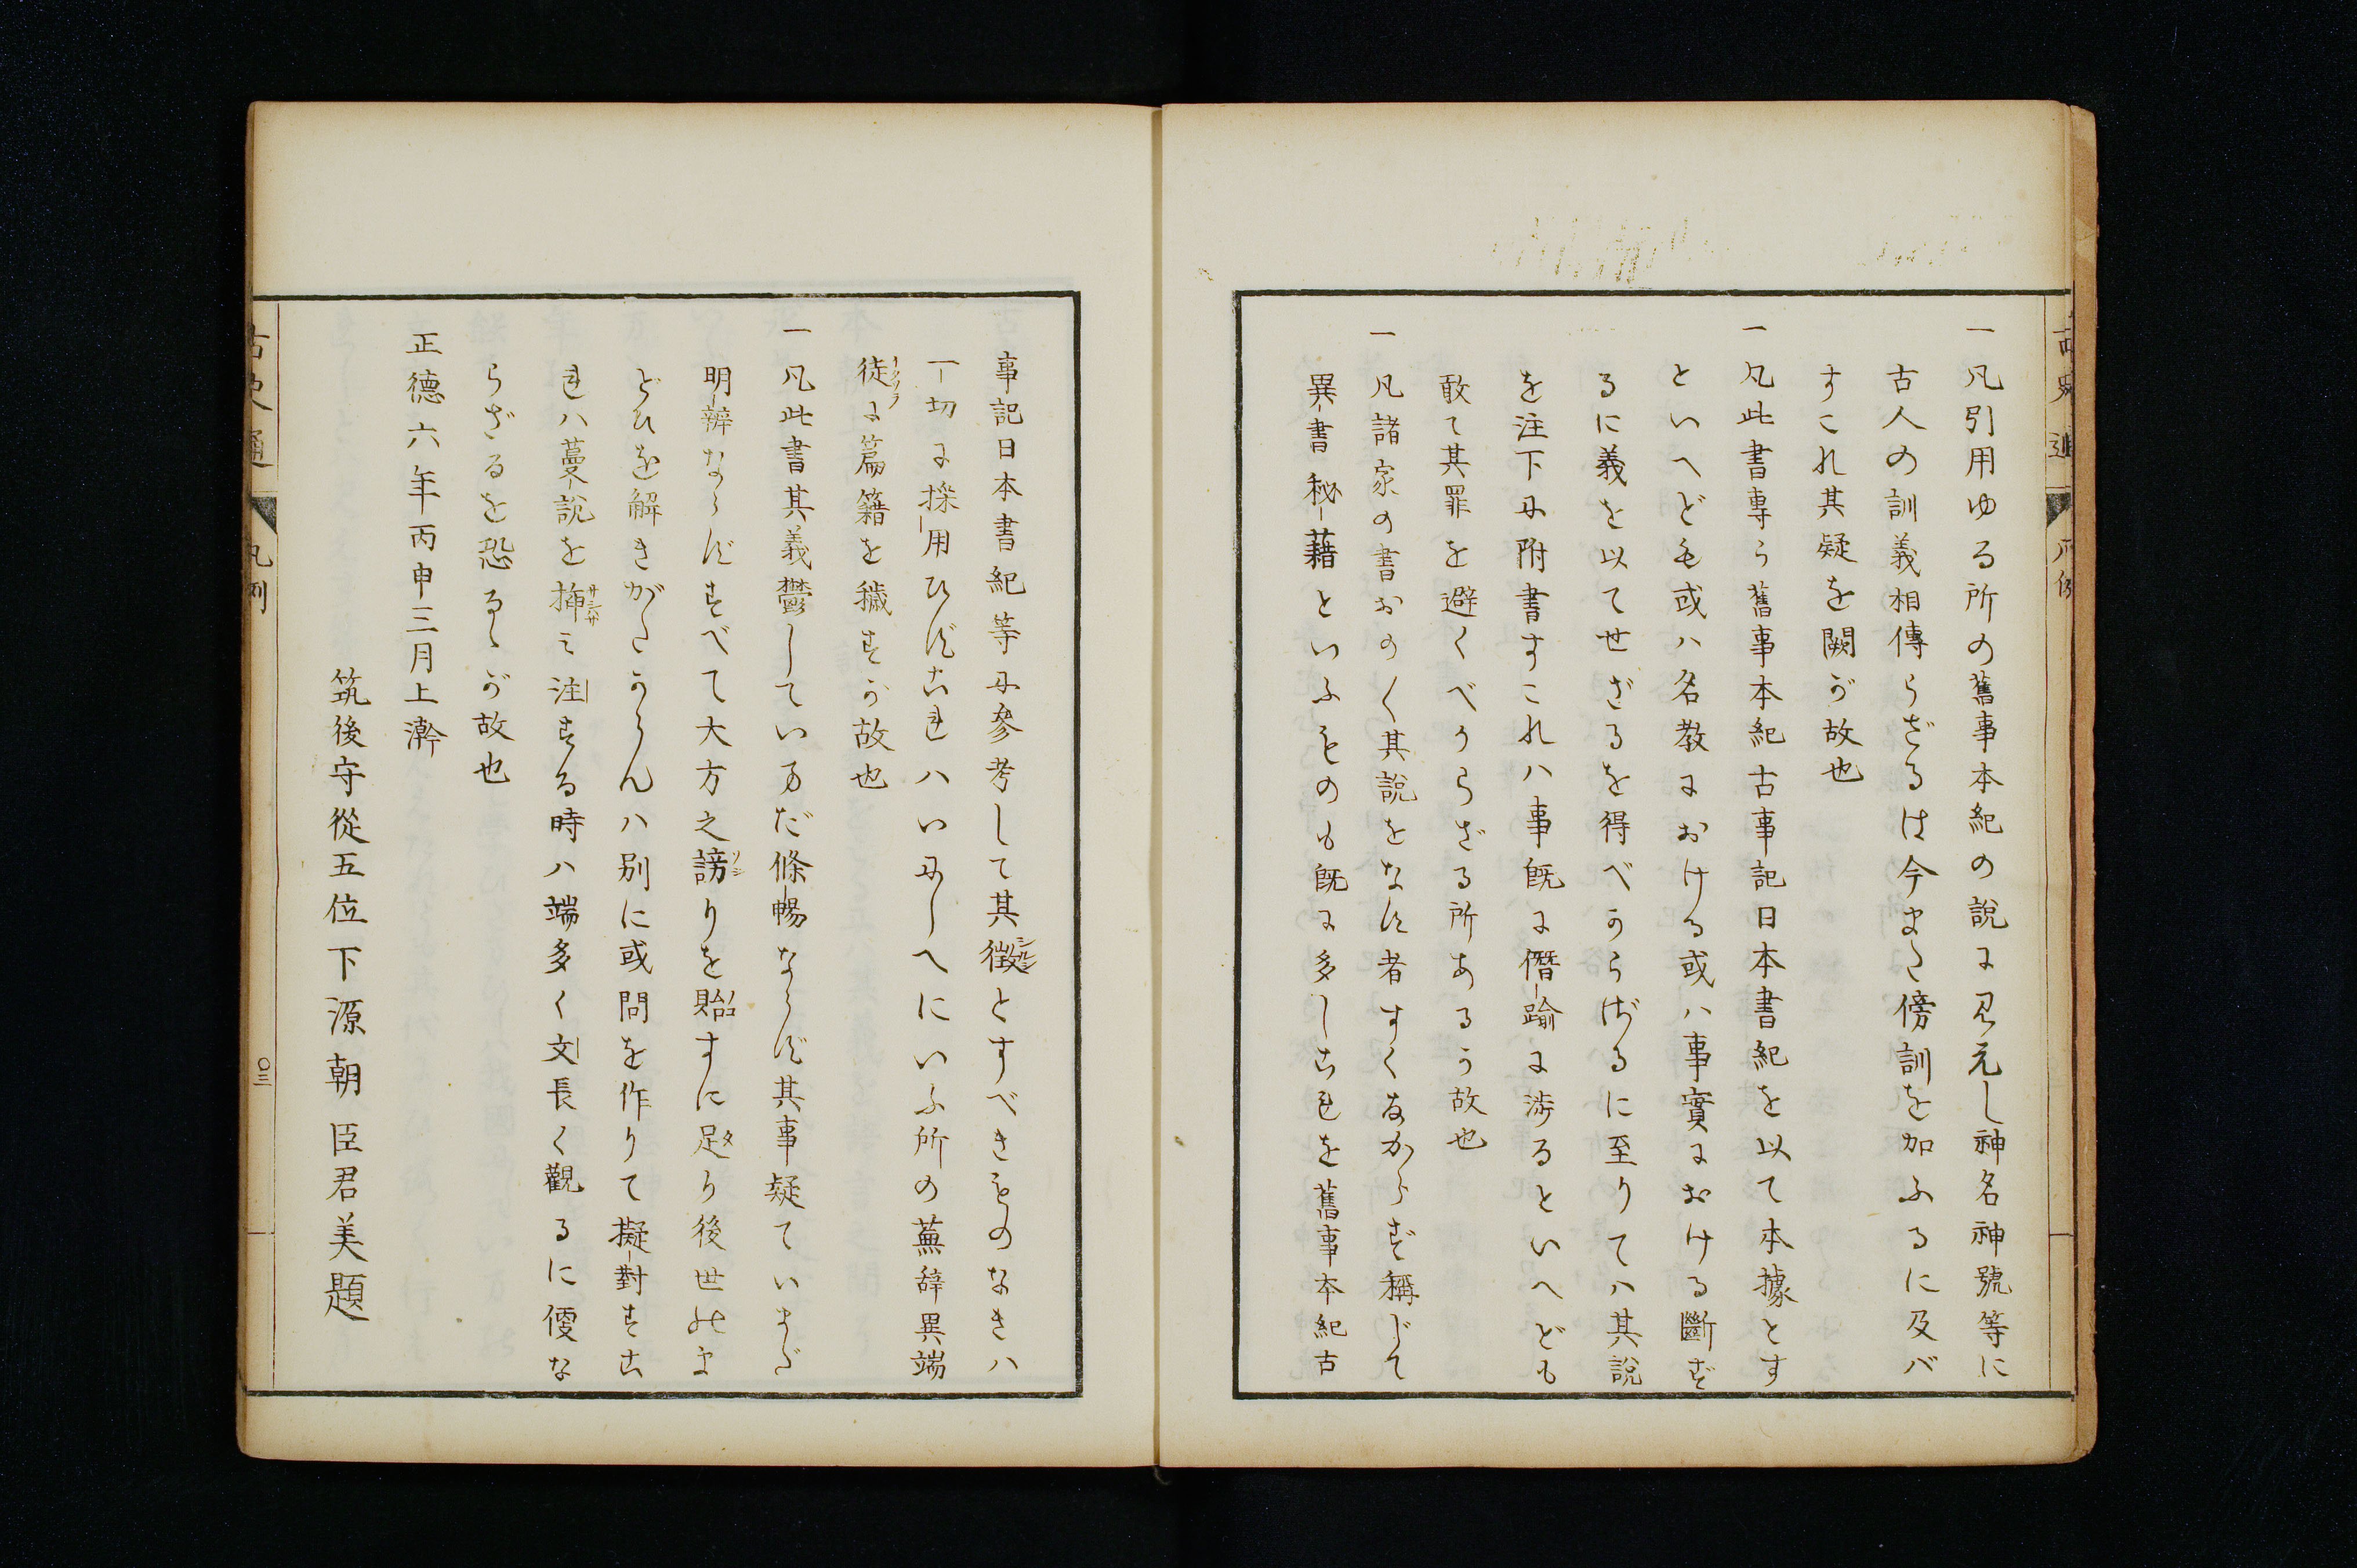 一凡引用ゆる所の舊事本紀の說に見えし神名神號等に
古人の訓義相傳らざるは今また傍訓を加ふるに及バ
すこれ其疑を闕が故也
一凡此書專ら舊事本紀古事記日本書紀を以て本據とす
といへども或ハ名教における或ハ事實における斷ず
るに義を以てせざるを得べからざるに至りてハ其說
を注下に附書すこれハ事既に僭踰に涉るといへども
敢て其罪を避くべからざる所あるか故也
一凡諸家の書おの〱其說をなす者すくなからず稱じて
異書秘籍といふものも既に多しこれを舊事本紀古
事記日本書紀等に參考して其徵シルシとすべきものなきハ
一切に採用ひずこれハいにしへにいふ所の蕪辞異端
徒イタツラに篇籍を穢すが故也
一凡此書其義鬱していまだ條暢ならず其事疑ていまだ
明辨ならずすべて大方之謗ソシりを貽ノコすに足タり後世のま
どひを解きがたからんハ別に或問を作りて擬對すこ
れハ蔓說を揷サシハサミ注する時ハ端多く文長く觀るに便な
らざるを恐るゝが故也
正德六年丙申三月上澣
筑後守從五位下源朝臣君美題
古史通
凡例
〇三